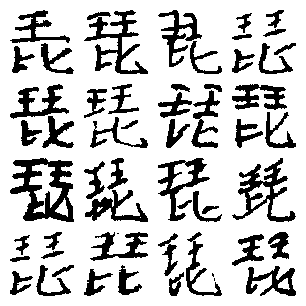 琵琵琵琵
琵琵琵琵
琵琵琵琵
琵琵琵琵